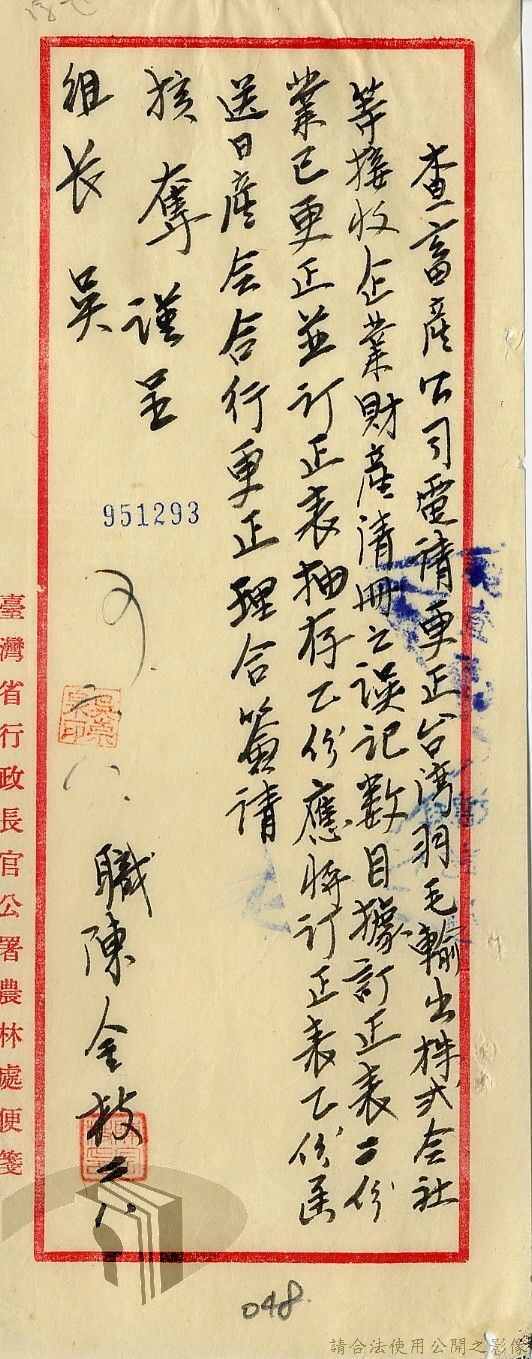 查畜產公司電請更正台湾羽毛輸出株式会社
等接收企業財產清冊之誤記数目據訂正表二份
業已更正並訂正表抽存乙份應將訂正表乙份函
送日產会合行更正理合簽請
核奪謹呈
組长吴
951293
可
六、八、
職陳金枝 六八
臺灣省行政長官公署農林處便箋
048.
請合法使用公開之影像